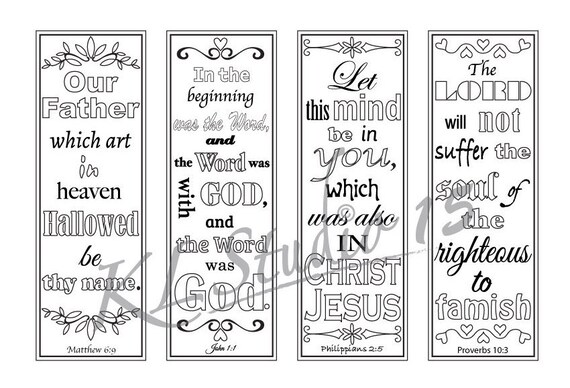 Our
Father
which art
in
heaven
Hallowed
be
thy name.
Matthew 6:9
In the
beginning
was the Word,
and
the Word was
with GOD,
and
the Word
was
God.
John 1:1
Let
this mind
be in
you,
which
was also
IN
CHRIST
JESUS
Philippians 2:5
The
LORD
will not
suffer the
soul of
the
righteous
to
famish
Proverbs 10:3
KL Studio 15